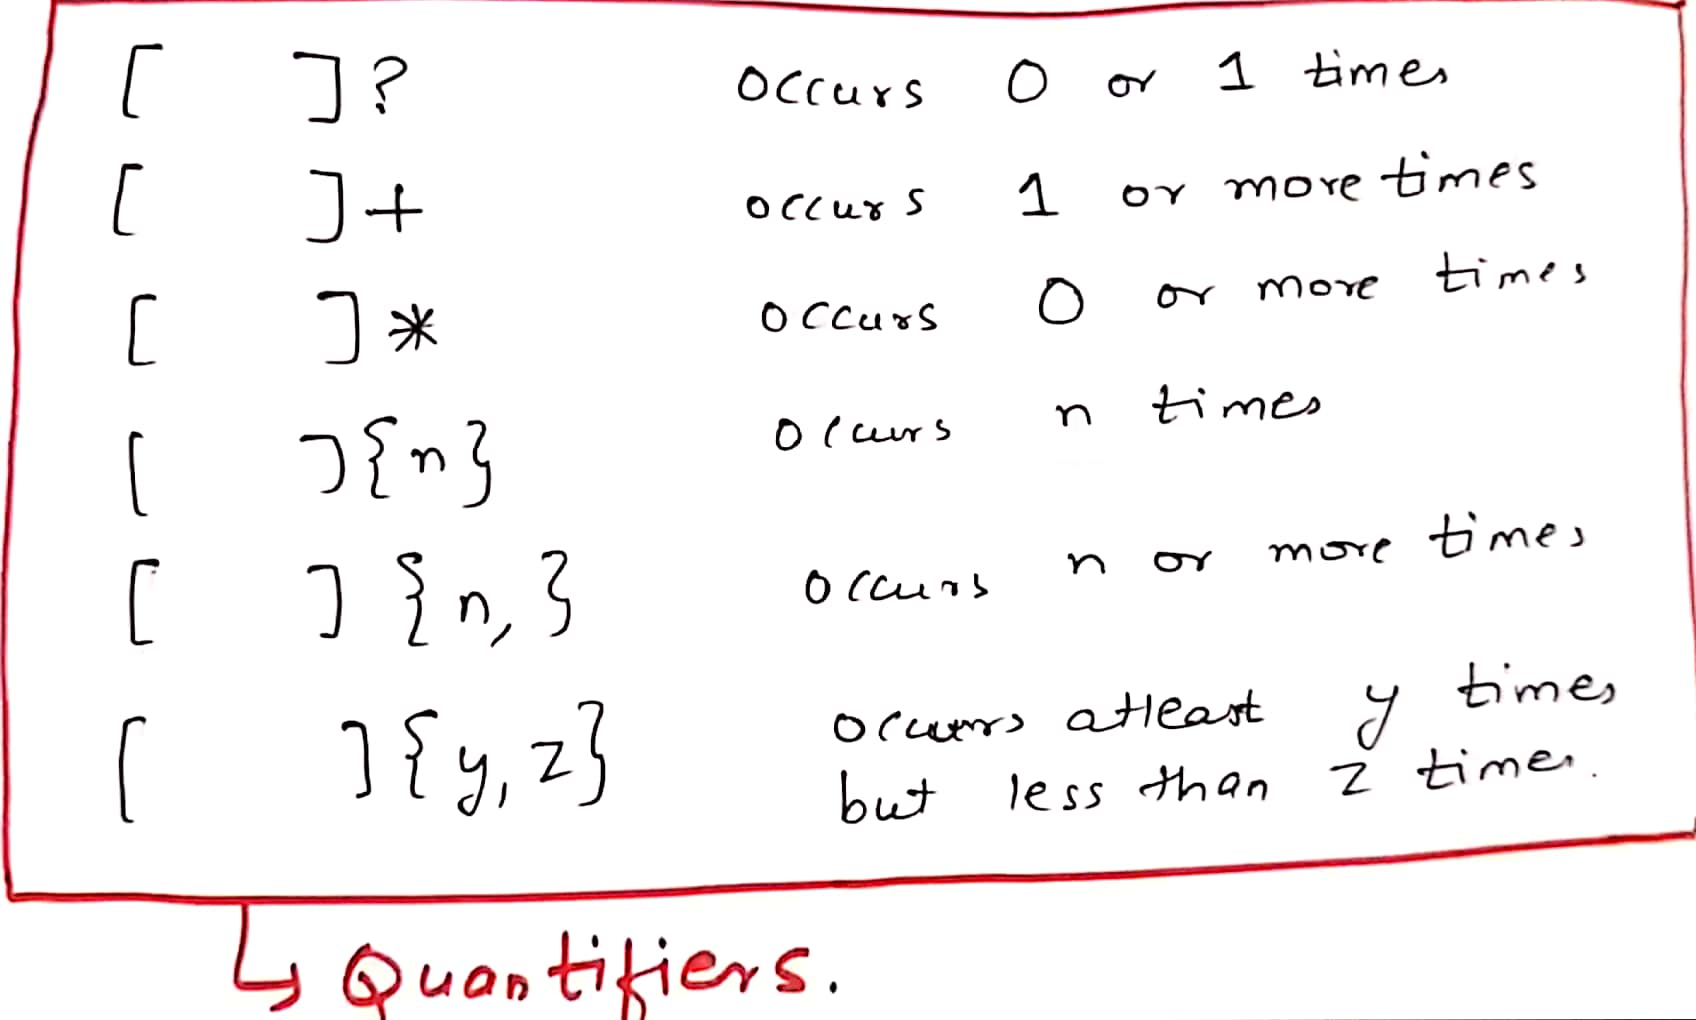 [ ]? occurs 0 or 1 times
[ ]+ occurs 1 or more times
[ ]* occurs 0 or more times
[ ]{n} occurs n times
[ ]{n,} occurs n or more times
[ ]{y,z} occurs atleast y times
but less than z times.
↳ Quantifiers.